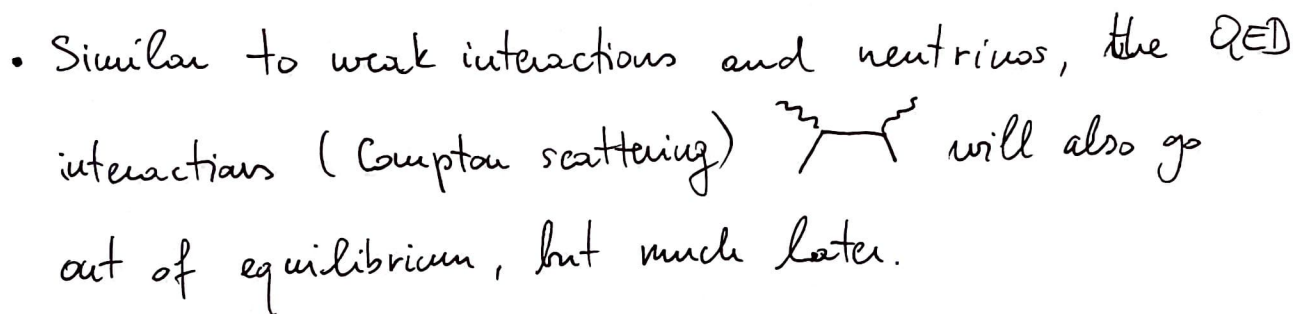 • Similar to weak interactions and neutrinos, the QED
interactions (Compton scattering) will also go
out of equilibrium, but much later.